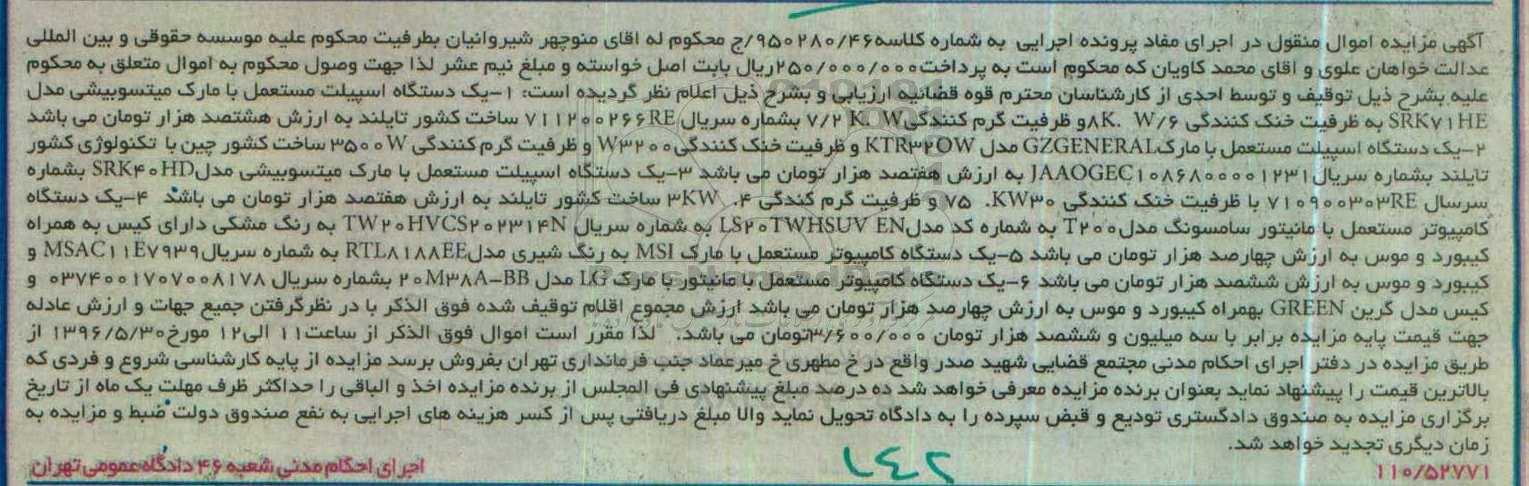 آگهی مزایده اموال منقول در اجرای مفاد پرونده اجرایی به شماره کلاسه۹۵۰۲۸۰/۴۶/ج محکوم له اقای منوچهر شیروانیان بطرفیت محکوم علیه موسسه حقوقی و بین المللی
عدالت خواهان علوی و اقای محمد کاویان که محکوم است به پرداخت۲۵۰/۰۰۰/۰۰۰ریال بابت اصل خواسته و مبلغ نیم عشر لذا جهت وصول محکوم به اموال متعلق به محکوم
علیه بشرح ذیل توقیف و توسط احدی از کارشناسان محترم قوه قضائیه ارزیابی و بشرح ذیل اعلام نظر گردیده است: ۱-یک دستگاه اسپیلت مستعمل با مارک میتسوبیشی مدل
SRK۷۱HE به ظرفیت خنک کنندگی ۸K. W/۶و ظرفیت گرم کنندگی۷/۲ K. W بشماره سریال ۷۱۱۲۰۰۲۶۶RE ساخت کشور تایلند به ارزش هشتصد هزار تومان می باشد
۲-یک دستگاه اسپیلت مستعمل با مارکGZGENERAL مدل KTR۳۲OW و ظرفیت خنک کنندگیW۳۲۰۰ و ظرفیت گرم کنندگی ۳۵۰۰W ساخت کشور چین با تکنولوژی کشور
تایلند بشماره سریالJAAOGEC۱۰۸۶۸۰۰۰۰۱۲۳۱ به ارزش هفتصد هزار تومان می باشد ۳-یک دستگاه اسپیلت مستعمل با مارک میتسوبیشی مدلSRK۴۰HD بشماره
سرسال ۷۱۰۹۰۰۳۰۳RE با ظرفیت خنک کنندگی KW۳۰. ۷۵ و ظرفیت گرم کندگی ۴. ۳KW ساخت کشور تایلند به ارزش هفتصد هزار تومان می باشد ۴-یک دستگاه
کامپیوتر مستعمل با مانیتور سامسونگ مدلT۲۰۰ به شماره کد مدلLS۲۰TWHSUV EN به شماره سریال TW۲۰HVCS۲۰۲۳۱۴N به رنگ مشکی دارای کیس به همراه
کیبورد و موس به ارزش چهارصد هزار تومان می باشد ۵-یک دستگاه کامپیوتر مستعمل با مارک MSI به رنگ شیری مدلRTL۸۱۸۸EE به شماره سریالMSAC۱۱E۷۹۳۹ و
کیبورد و موس به ارزش ششصد هزار تومان می باشد ۶-یک دستگاه کامپیوتر مستعمل با مانیتور با مارک LG مدل ۲۰M۳۸A-BB بشماره سریال ۰۳۷۴۰۰۱۷۰۷۰۰۸۱۷۸ و
کیس مدل گرین GREEN بهمراه کیبورد و موس به ارزش چهارصد هزار تومان می باشد ارزش مجموع اقلام توقیف شده فوق الذکر با در نظرگرفتن جمیع جهات و ارزش عادله
جهت قیمت پایه مزایده برابر با سه میلیون و ششصد هزار تومان ۳/۶۰۰/۰۰۰تومان می باشد. لذا مقرر است اموال فوق الذکر از ساعت۱۱ الی۱۲ مورخ۱۳۹۶/۵/۳۰ از
طریق مزایده در دفتر اجرای احکام مدنی مجتمع قضایی شهید صدر واقع در خ مطهری خ میرعماد جنب فرمانداری تهران بفروش برسد مزایده از پایه کارشناسی شروع و فردی که
بالاترین قیمت را پیشنهاد نماید بعنوان برنده مزایده معرفی خواهد شد ده درصد مبلغ پیشنهادی فی المجلس از برنده مزایده اخذ و الباقی را حداکثر ظرف مهلت یک ماه از تاریخ
برگزاری مزایده به صندوق دادگستری تودیع و قبض سپرده را به دادگاه تحویل نماید والا مبلغ دریافتی پس از کسر هزینه های اجرایی به نفع صندوق دولت ضبط و مزایده به
زمان دیگری تجدید خواهد شد.
۱۱۰/۵۲۷۷۱ ۱۴۲ اجرای احکام مدنی شعبه ۴۶ دادگاه عمومی تهران